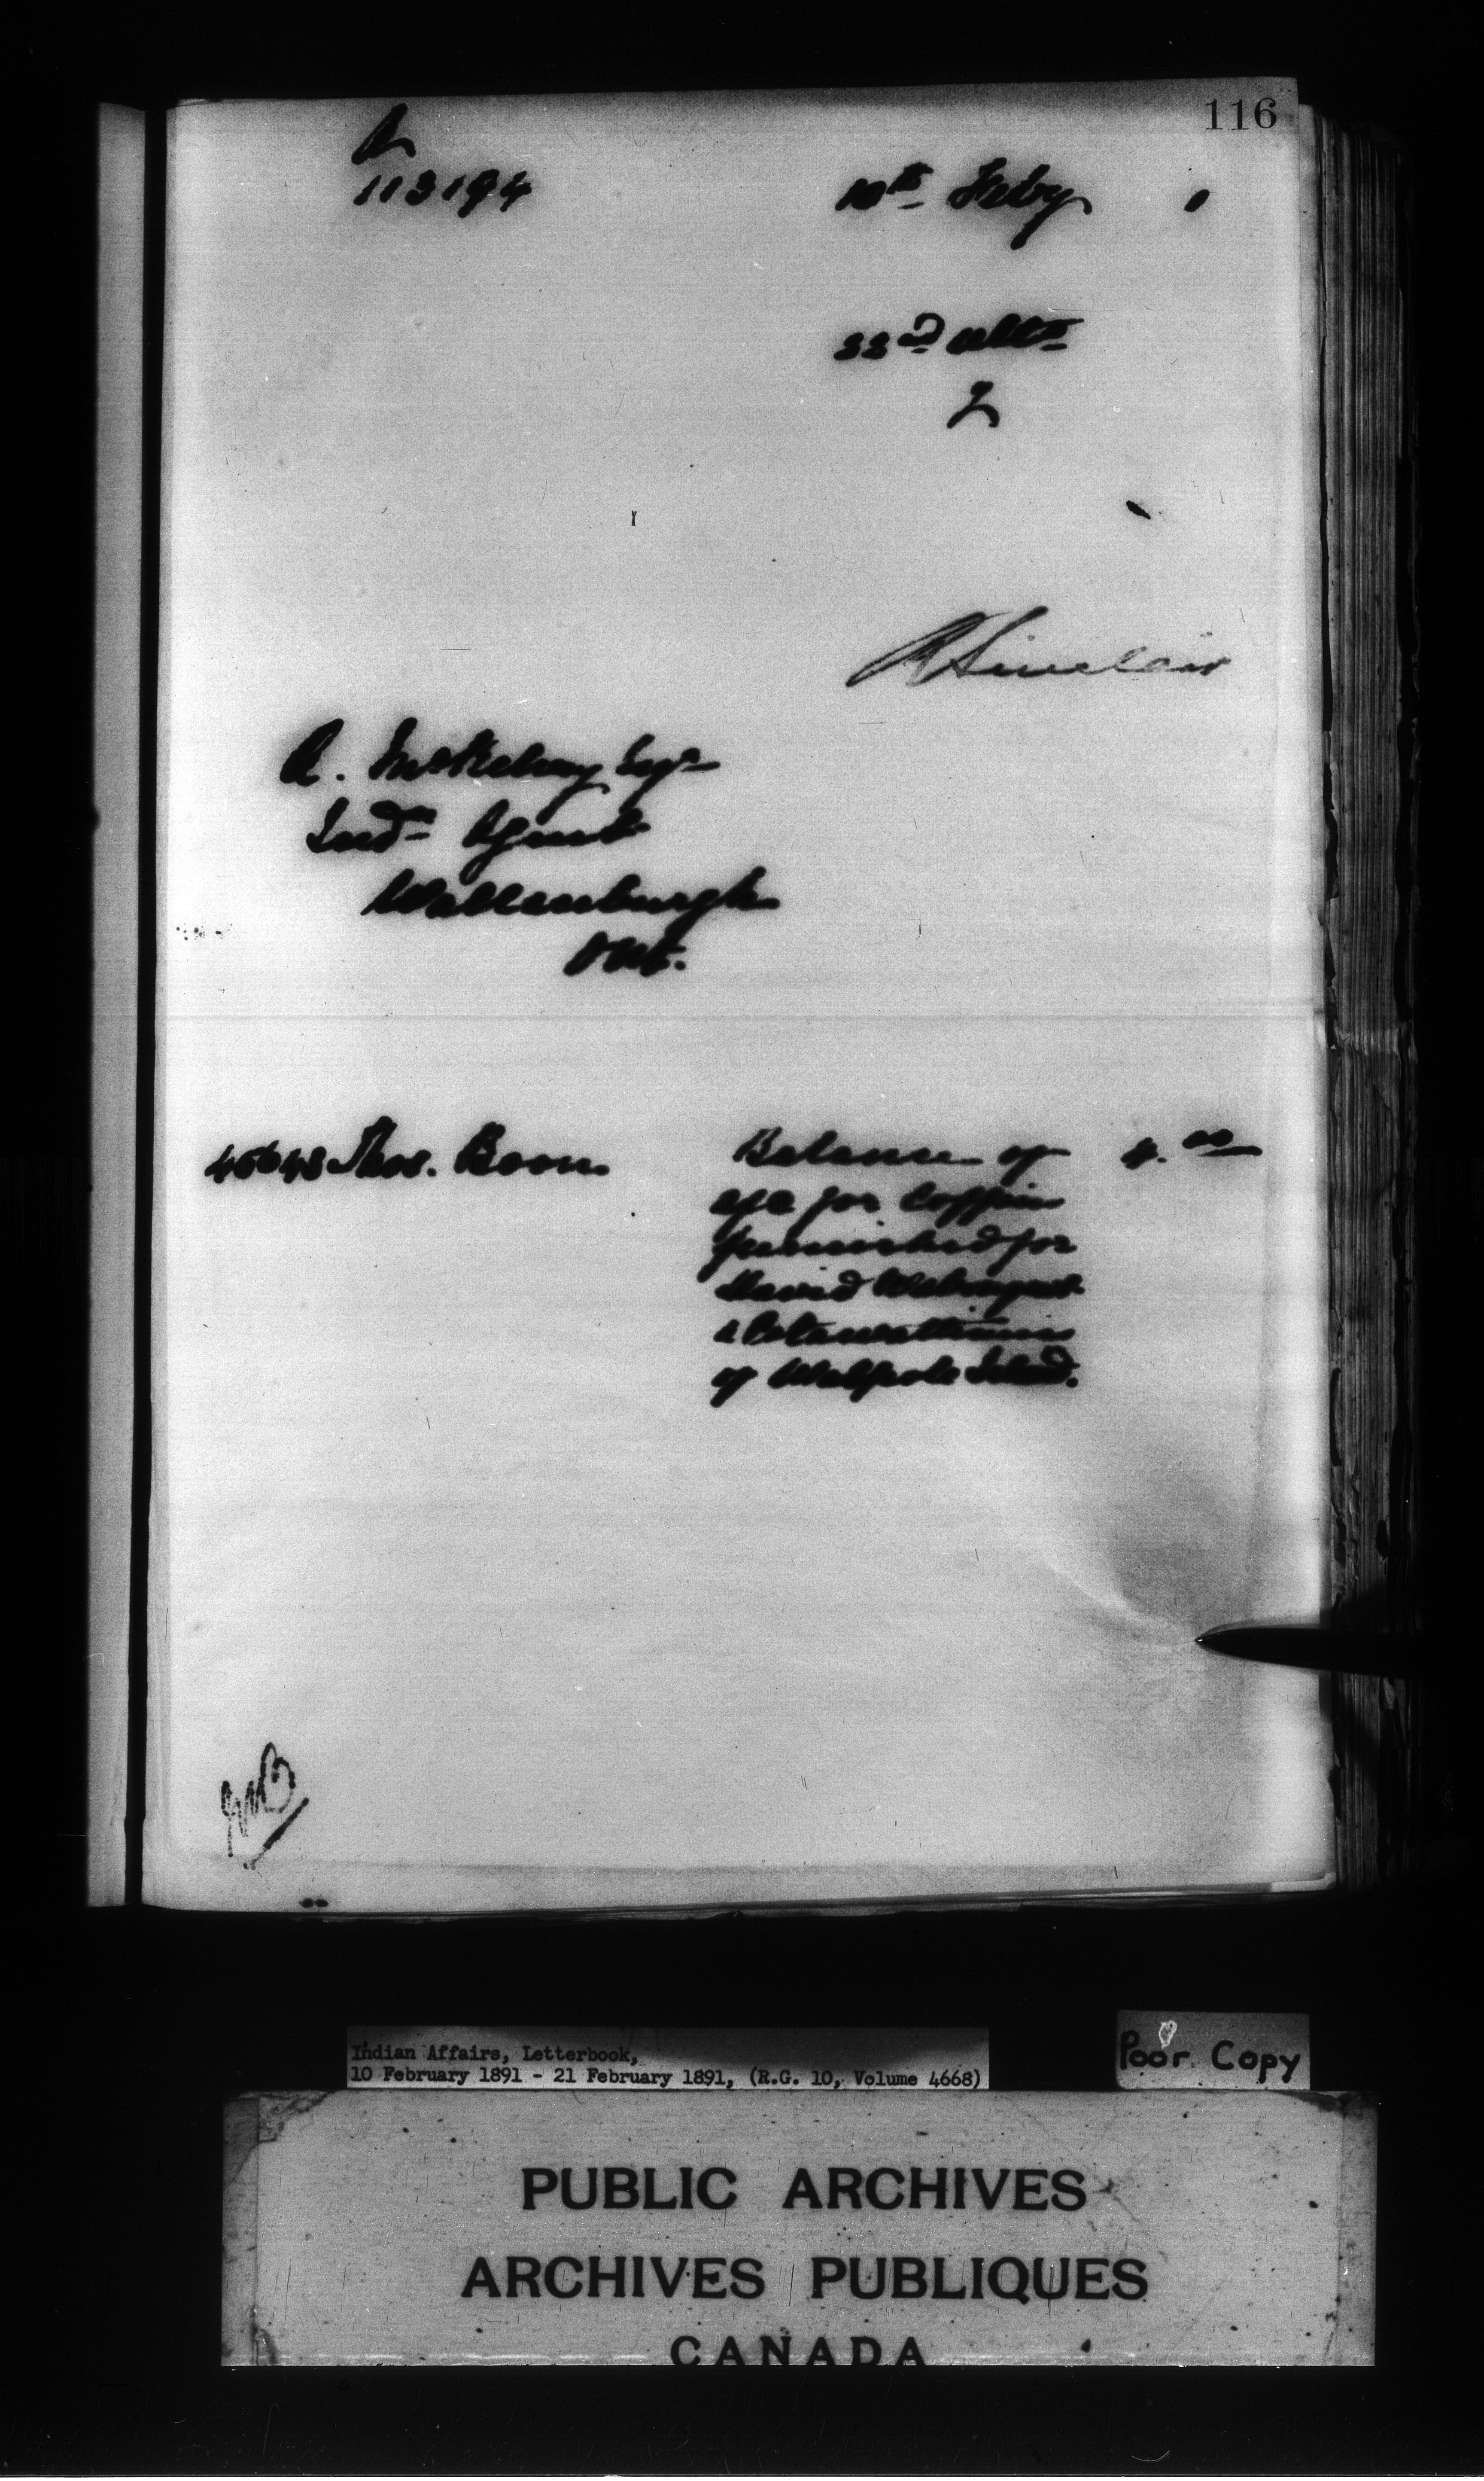 116
A
113194
10th Feby 1
22nd ulto
2
R Sinclair
A. McKelvey Esqr
Indn Agent
Wallaceburgh
Ont.
Thos. Boon Balance of 4.00
a/c for Coffin
furnished for
David
a Potawattimie
of Walpole Island.
JMB
Indian Affairs, Letterbook,
10 February 1891 - 21 February 1891, (R.G. 10, Volume 4668)
Poor Copy
PUBLIC ARCHIVES
ARCHIVES PUBLIQUES
CANADA